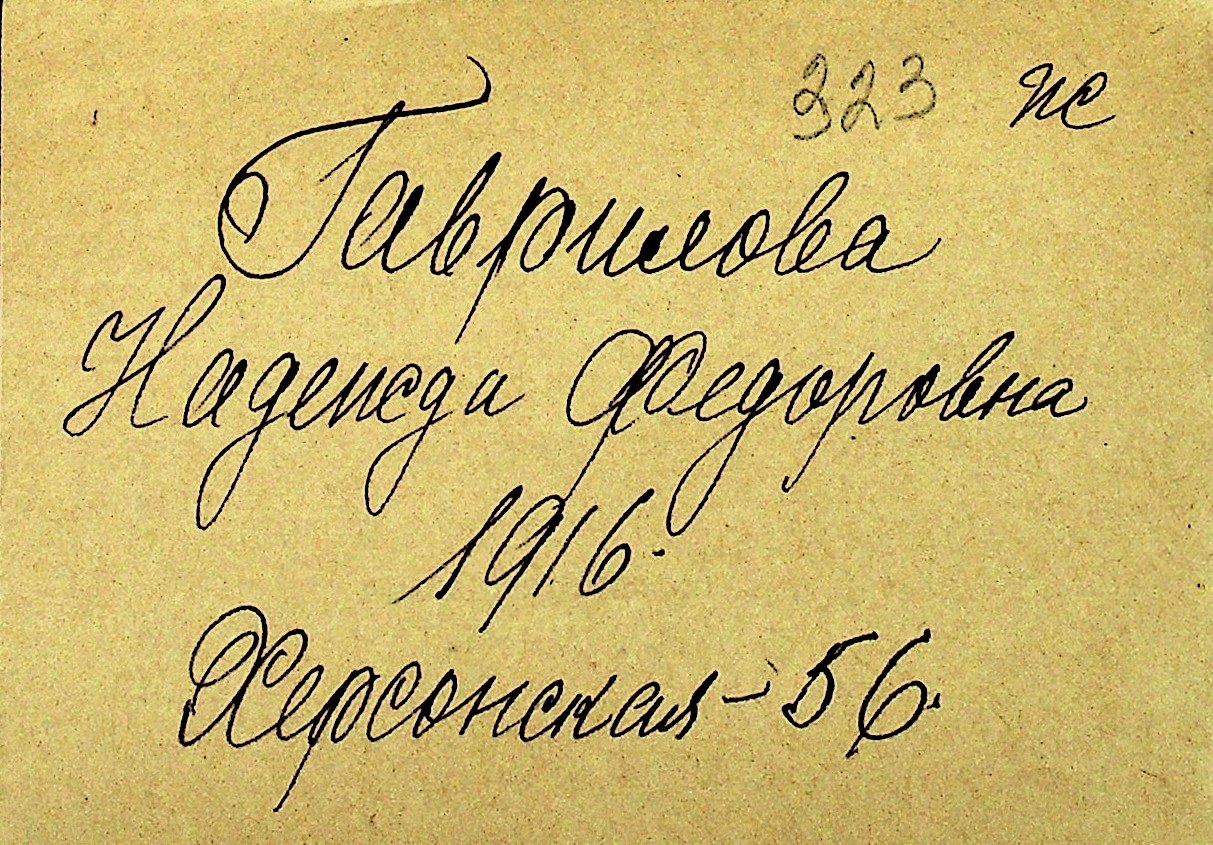 323 пс
Гаврилова
Надежда Федоровна
1916.
Херсонская – 56.